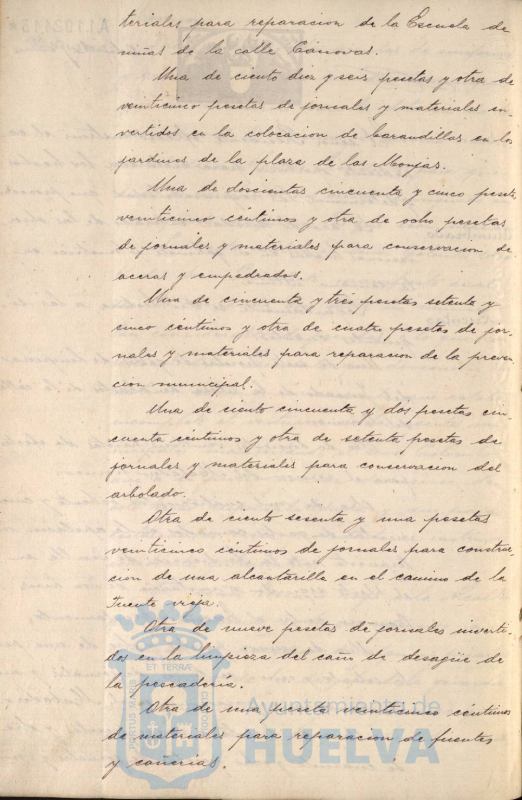 teriales para reparacion de la Escuela de
niñas de la calle Cánovas.
Una de ciento diez y seis pesetas y otra de
veinticinco pesetas de jornales y materiales in-
vertidos en la colocacion de barandillas en los
jardines de la plaza de las Monjas.
Una de doscientas cincuenta y cinco pesetas
veinticinco céntimos y otra de ocho pesetas
de jornales y materiales para conservacion de
aceras y empedrados.
Una de cincuenta y tres pesetas setenta y
cinco céntimos y otra de cuatro pesetas de jor-
nales y materiales para reparacion de la preven-
cion municipal.
Una de ciento cincuenta y dos pesetas cin-
cuenta céntimos y otra de setenta pesetas de
jornales y materiales para conservacion del
arbolado.
Otra de ciento sesenta y una pesetas
veinticinco céntimos de jornales para construc-
cion de una alcantarilla en el camino de la
Fuente vieja.
Otra de nueve pesetas de jornales inverti-
dos en la limpieza del caño de desagüe de
la pescadería.
Otra de una peseta veinticinco céntimos
de materiales para reparacion de fuentes
y cañerias.
PORTUS MARIS
ET TERRÆ
CUSTODIA
Ayuntamiento de
HUELVA